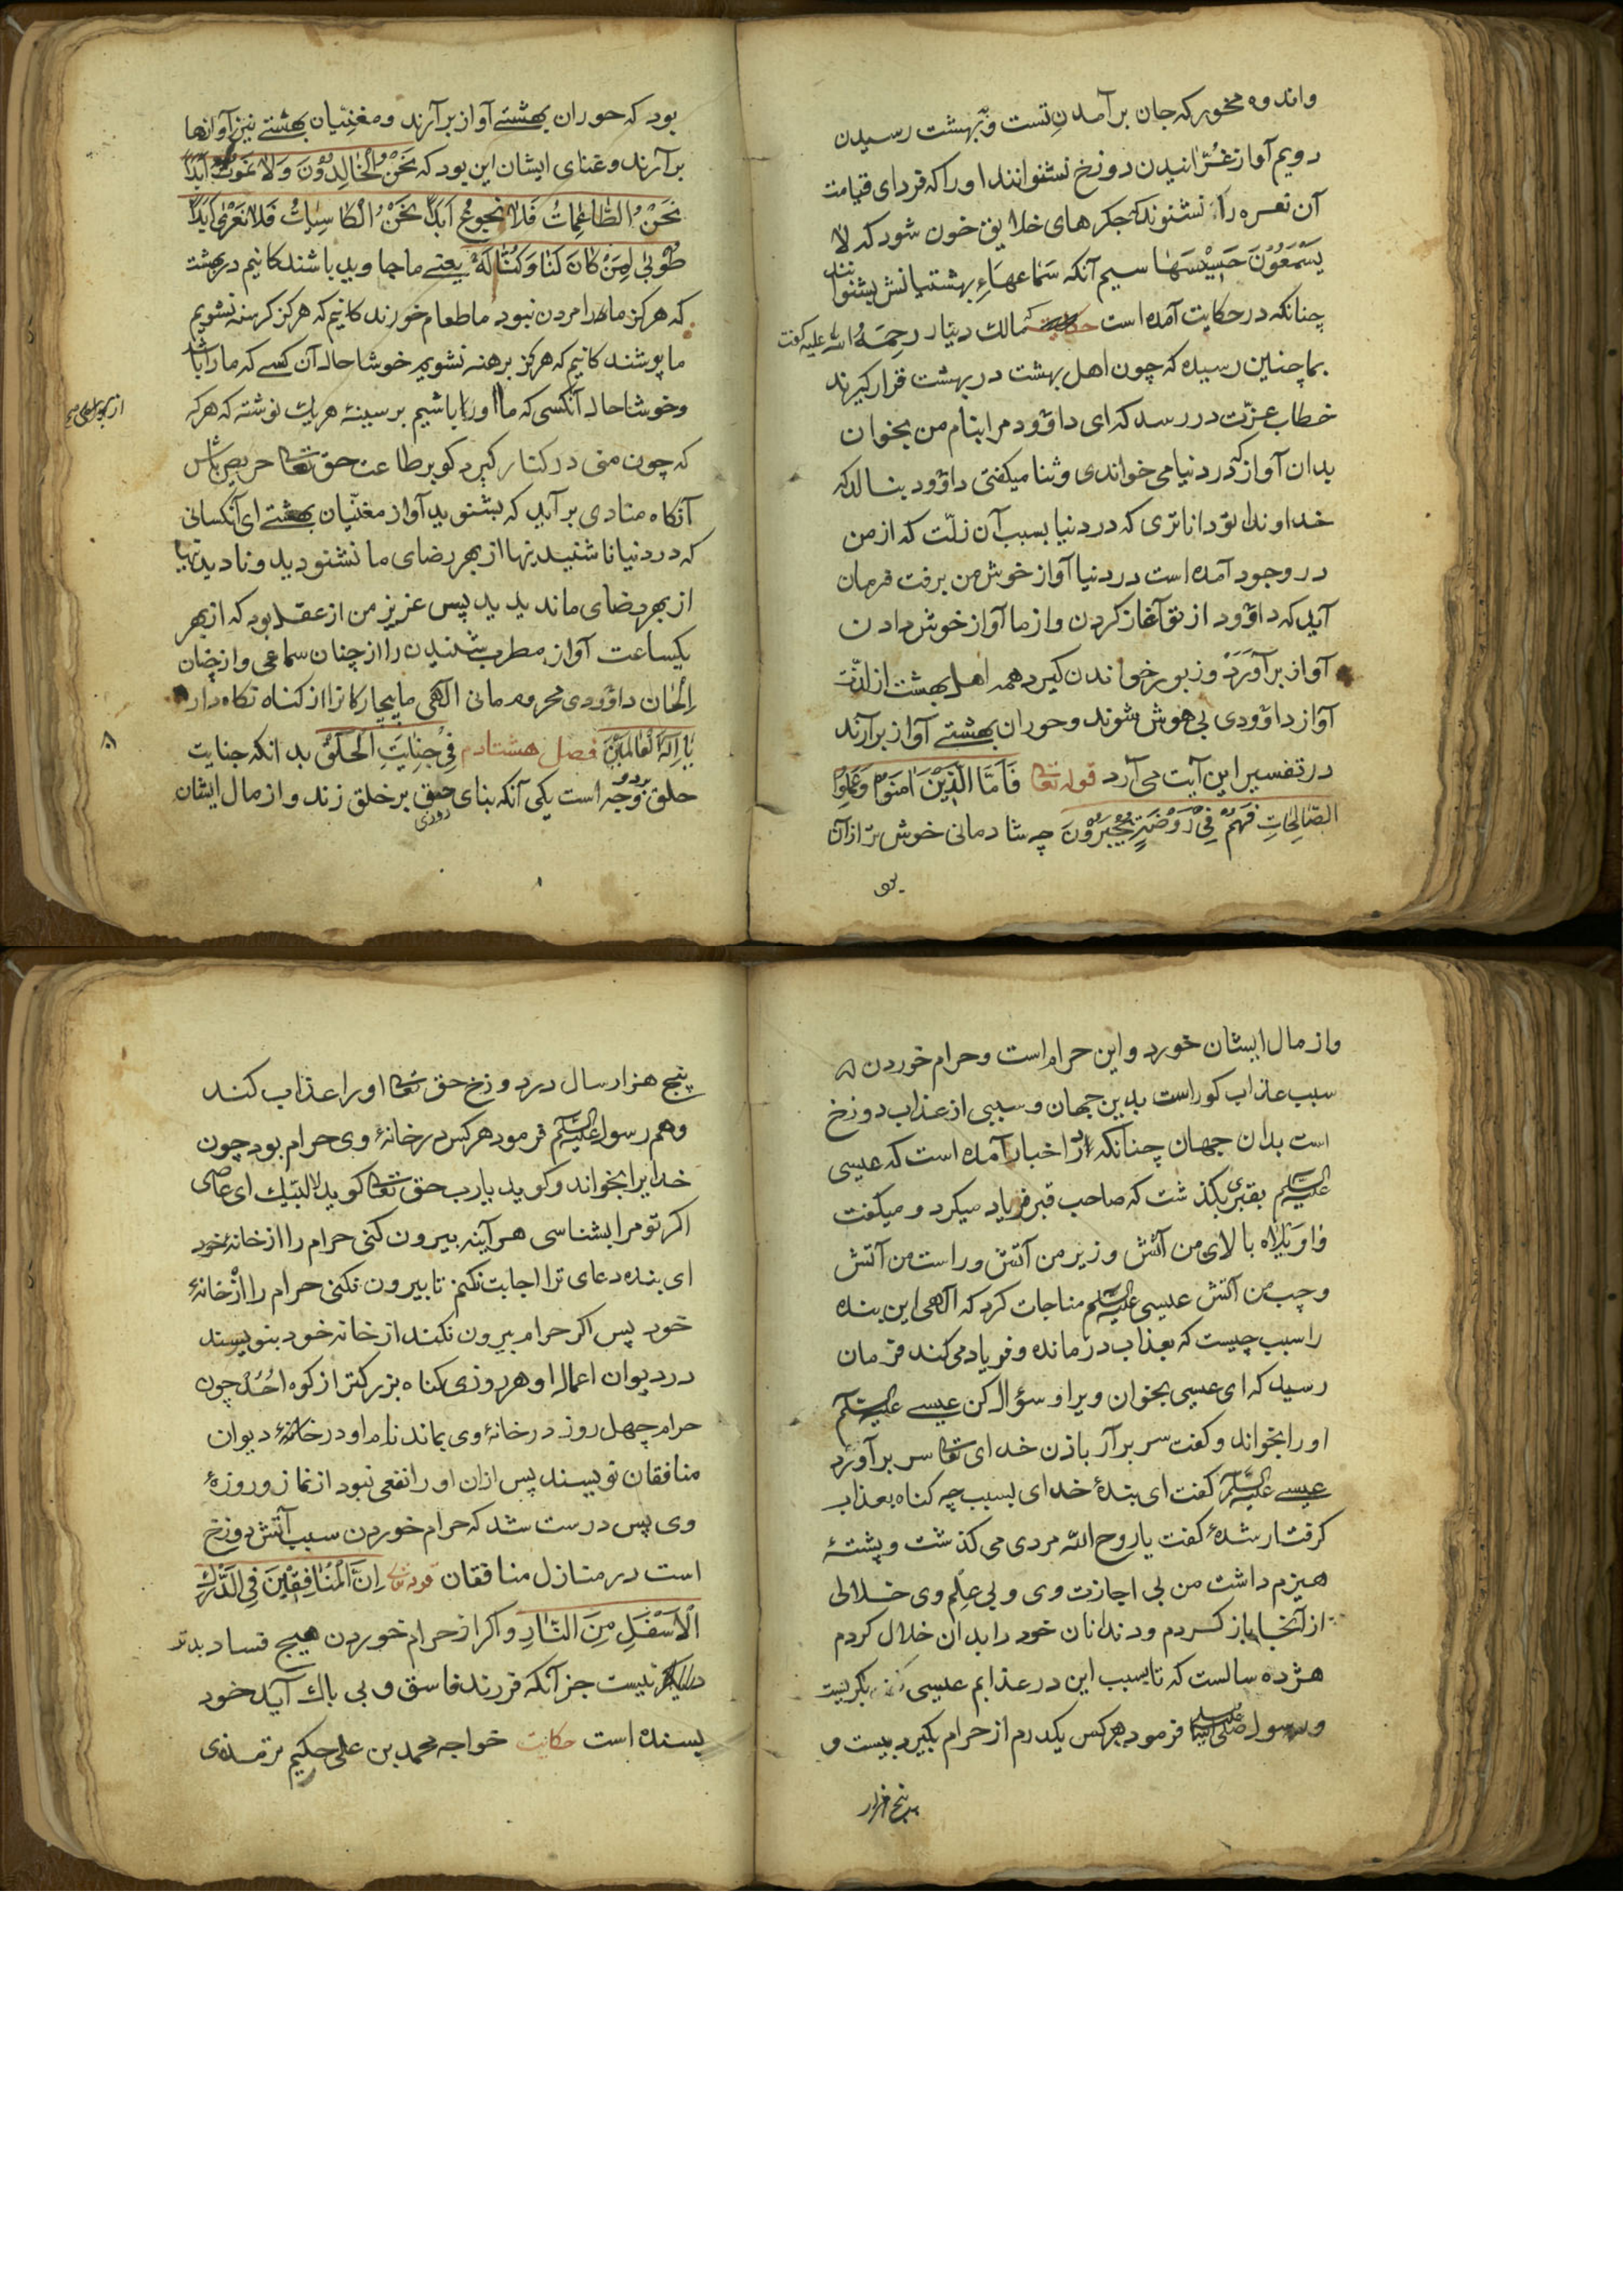 واندوه مخور که جان برآمدن تست و بهشت رسیدن
دویم آواز غرّانیدن دوزخ نشنوانند اورا که فردای قیامت
آن نعره را نشنوند که جکرهای خلایق خون شود که لا
یَسْمَعُوْنَ حَسِیْسَهَا سیم آنکه سَماعهَاءِ بهشتیانش بشنوانند
چنانکه در حکایت آمده است حکایت که مالک دینار رحمة الله علیه کفت
بما چنین رسیده که چون اهل بهشت در بهشت قرار کیرند
خطاب عزّت در رسد که ای داؤود مرا بنام من بخوان
بدان آواز که در دنیا می خواندی و ثنا میکفتی داؤود بنالد که
خداوندا تو داناتری که در دنیا بسبب آن زلّت که از من
در وجود آمده است در دنیا آواز خوش من برفت فرمان
آید که داؤود از تو آغاز کردن و از ما آواز خوش دادن
آواز برآوَرَدْ و زبور خواندن کیرد همه اهل بهشت از لذّت
آواز داؤودی بی هوش شوند و حوران بهشتے آواز برآرند
در تفسیر این آیت می آرد قوله تعا فَاَمَّا الَّذِیْنَ اٰمَنُوا وَعَمِلُوا
الصَّالِحَاتِ فَهُمْ فِیْ رَوْضَةٍ یُحْبَرُوْنَ چه شادمانی خوش تر از آن
بود که حوران بهشتے آواز برآرند و مغنّیان بهشتے نیز آوازها
برآرند و غنای ایشان این بود که نَحْنُ الْخَالِدُوْنَ وَلَا نَمُوْتُ اَبَدًا
نَحْنُ الطَّاعِمَاتُ فَلَا نَجُوعُ اَبَدًا نَحْنُ الْکَاسِیَاتُ فَلَا نَعْرٰی اَبَدًا
طُوْبٰی لِمَنْ کَانَ لَنَا وَکُنَّا لَهُ یعنے ما جاوید باشندکانیم در بهشت
که هرکز مارا مردن نبود ما طعام خورندکانیم که هرکز کرسنه نشویم
ما پوشندکانیم که هرکز برهنه نشویم خوشا حال آن کسے که ما را باشد
وخوشا حال آنکسی که ما اورا باشیم بر سینۀ هریک نوشته که هرکه
که چون منی در کنار کیرد کو بر طاعت حق تعا حریص باش
آنکاه منادی برآید که بشنوید آواز مغنّیان بهشتے ای آنکسانی
که در دنیا ناشنیدنیها از بهر رضای ما نشنودید و نادیدنیها
از بهر رضای ما ندیدید پس عزیز من از عقل بود که از بهر
یکساعت آواز مطرب شنیدن را از چنان سماعی و از چنان
اَلْحَان داؤودی محروم مانی الٰهی ما بیچارکانرا از کناه نکاه دار
یَا اِلٰهَ الْعَالَمِیْنَ فصل هشتادم فِیْ جِنِایَتِ الْحَلْقِ بدانکه جنایت
حلق بر دو وجه است یکی آنکه بنای حلق بر خلق زند و از مال ایشان
روزی
واز مال ایشان خورد و این حرام است و حرام خوردن
سبب عذاب کور است بدین جهان و سببی از عذاب دوزخ
است بدان جهان چنانکه در اخبار آمده است که عیسی
علیه السلم بقبری بکذشت که صاحب قبر فریاد میکرد و میکفت
وَاوَیْلَاه بالای من آتش و زیر من آتش و راست من آتش
و چپ من آتش عیسی علیه السلم مناجات کرد که الٰهی این بنده
را سبب چیست که بعذاب درمانده و فریاد می کند فرمان
رسید که ای عیسی بخوان ویرا و سؤال کن عیسے علیه السلم
اورا بخواند و کفت سر برآر باذن خدای تعا سر برآورد
عیسے علیه السلم کفت ای بندۀ خدای بسبب چه کناه بعذاب
کرفتار شدۀ کفت یا روح الله مردی می کذشت و پشتۀ
هیزم داشت من بی اجازت وی و بی علم وی خلالی
از آنجا باز کردم و دندانان خود را بدان خلال کردم
هژده سالست که تا بسبب این در عذابم عیسی بکریست
و رسول فرمود هرکس یکدرم از حرام بکیرد بیست و
پنج هزار
پنج هزار سال در دوزخ حق تعا اورا عذاب کند
وهم رسول علیه السلم فرمود هرکس در خانۀ وی حرام بود چون
خدایرا بخواند و کوید یا رب حق تعا کوید لا لبّیک ای عاصی
اکر تو مرا بشناسی هرآینه بیرون کنی حرام را از خانۀ خود
ای بنده دعای ترا اجابت نکنم تا بیرون نکنی حرام را از خانۀ
خود پس اکر حرام بیرون نکند از خانه خود بنویسند
در دیوان اعمال او هر روزی کناه بزرکتر از کوه اُحُد چون
حرام چهل روز در خانۀ وی بماند نام او در خانۀ دیوان
منافقان نویسند پس ازان اورا نفعی نبود از نماز و روزۀ
وی پس درست شد که حرام خوردن سبب آتش دوزخ
است در منازل منافقان قوله تعالی اِنَّ الْمُنَافِقِیْنَ فِی الدَّرْکِ
الْاَسْفَلِ مِنَ النَّارِ و اکر از حرام خوردن هیچ فساد بدتر
دیکر نیست جز آنکه فرزند فاسق و بی باک آید خود
بسنده است حکایت خواجه محمد بن علی حکیم ترمذی